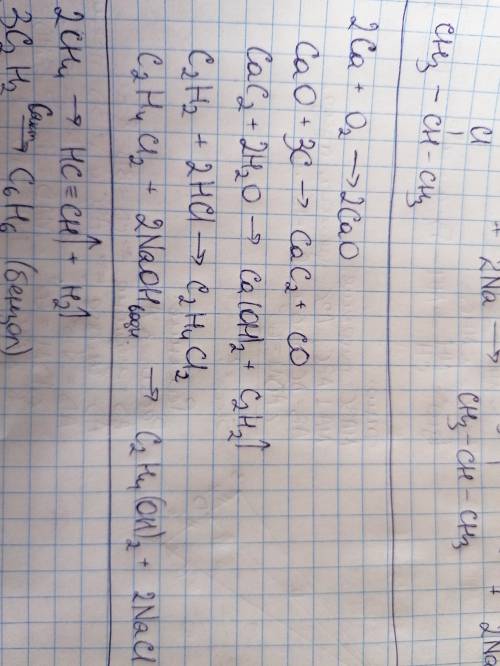 Cl
CH3 – CH – CH3 + 2Na → CH3 – CH – CH3 + 2Na
2Ca + O2 → 2CaO
CaO + 3C → CaC2 + CO
CaC2 + 2H2O → Ca(OH)2 + C2H2↑
C2H2 + 2HCl → C2H4Cl2
C2H4Cl2 + 2NaOH водн → C2H4(OH)2 + 2NaCl
2CH4 → HC≡CH↑ + H2↑
3C2H2 Cакт → C6H6 (бензол)